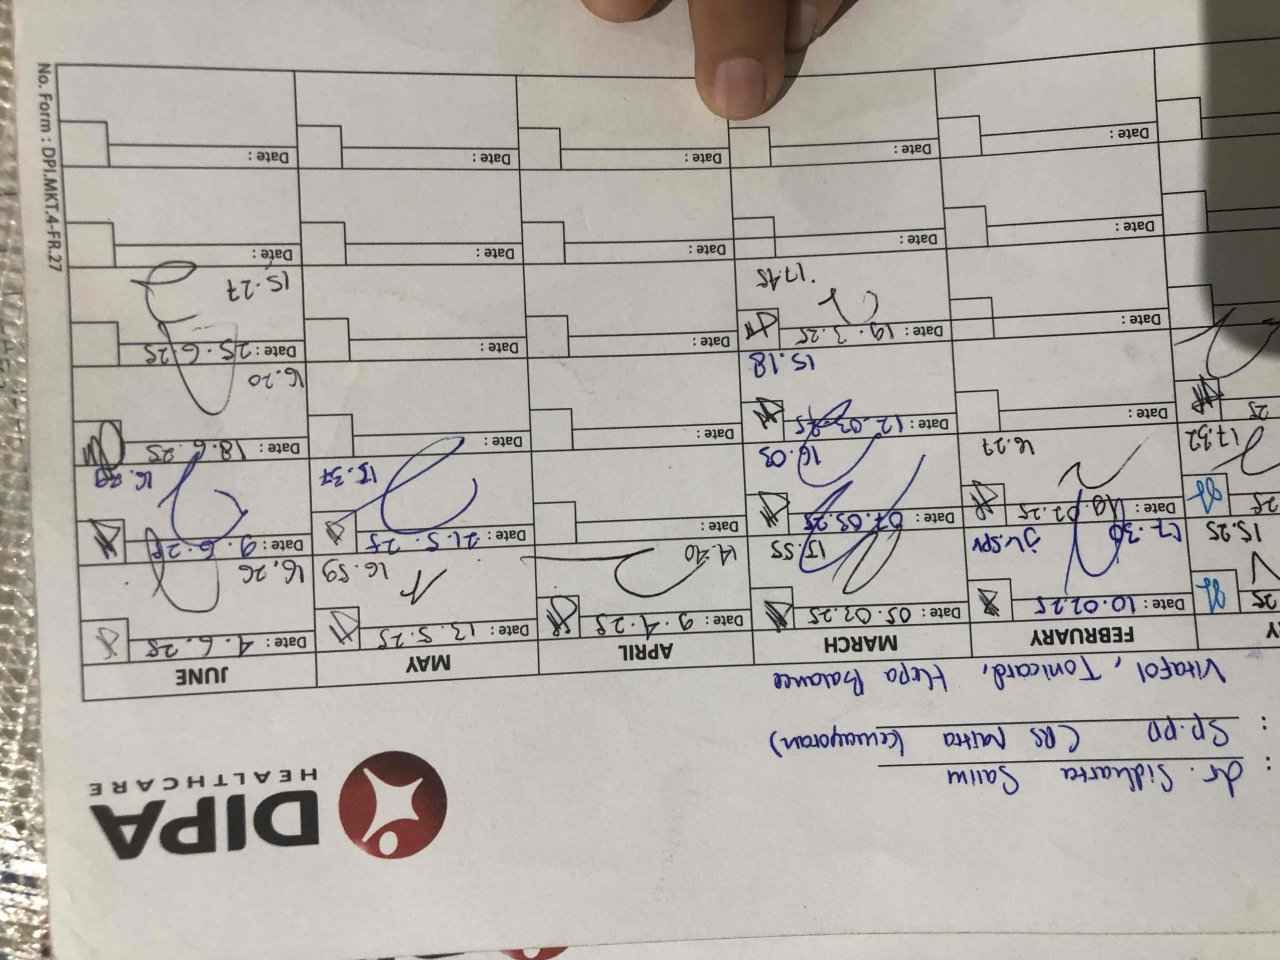 DIPA
HEALTHCARE
: dr. Sidharta Salim
: Sp.PD (RS Mitra Kemayoran)
Vitafol, Tonicard, Hepa Balance
FEBRUARY MARCH APRIL MAY JUNE
Date: 10.02.25 Date: 05.03.25 Date: 9.4.25 Date: 13.5.25 Date: 4.6.25
15.25 15.55 14.40 16.59 16.26
Date: 19.02.25 Date: 07.03.25 Date: Date: 21.5.25 Date: 9.6.25
17.32 16.27 16.03 15.37
Date: Date: 12.03.25 Date: Date: Date: 18.6.25
15.18 16.20
Date: Date: 19.3.25 Date: Date: Date: 25.6.25
17.15 15.27
Date: Date: Date: Date: Date:
Date: Date: Date: Date: Date:
No. Form : DPI.MKT.4-FR.27